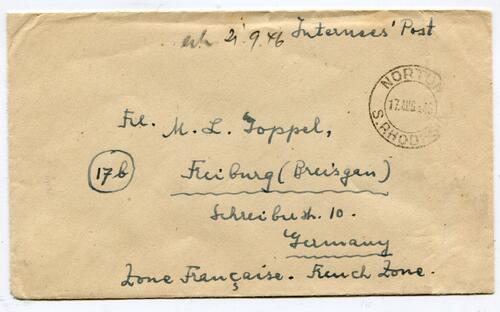 erh 21.9.46 Internees' Post
NORTON
17 AUG 46
S. RHODESIA
Frl. M. L. Goppel,
17b
Freiburg (Breisgau)
Schreiberstr. 10.
Germany
Zone Française. French Zone.